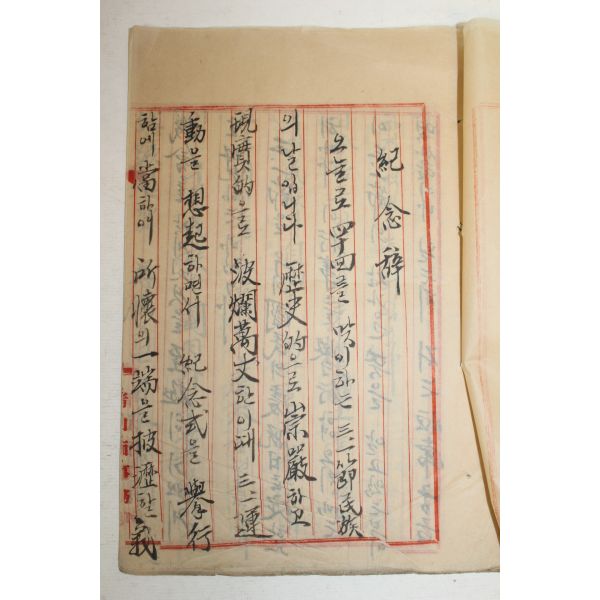 紀念辞
오늘로 四十回를 맞이하는 三一節 民族
의 날입니다 歷史的으로 崇嚴하고
現實的으로 波爛萬丈한 이때 三·一運
動을 想起하면서 紀念式을 擧行
함에 當하여 所懷의 一端을 披瀝한